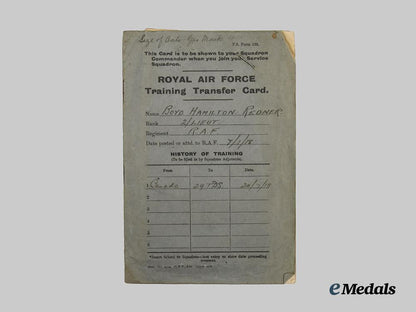 Size of
This Card is to be shown to your Squadron
Commander when you join your Service
Squadron.
ROYAL AIR FORCE
Training Transfer Card.
Name BOYD HAMILTON REDNER
Rank 2/LIEUT
Regiment R.A.F
Date posted or attd. to R.A.F. 7/1/18
HISTORY OF TRAINING
(To be filled in by Squadron Adjutants).
From To Date.
1 Canada 29 TDS
2
3
4
5
6
eMedals